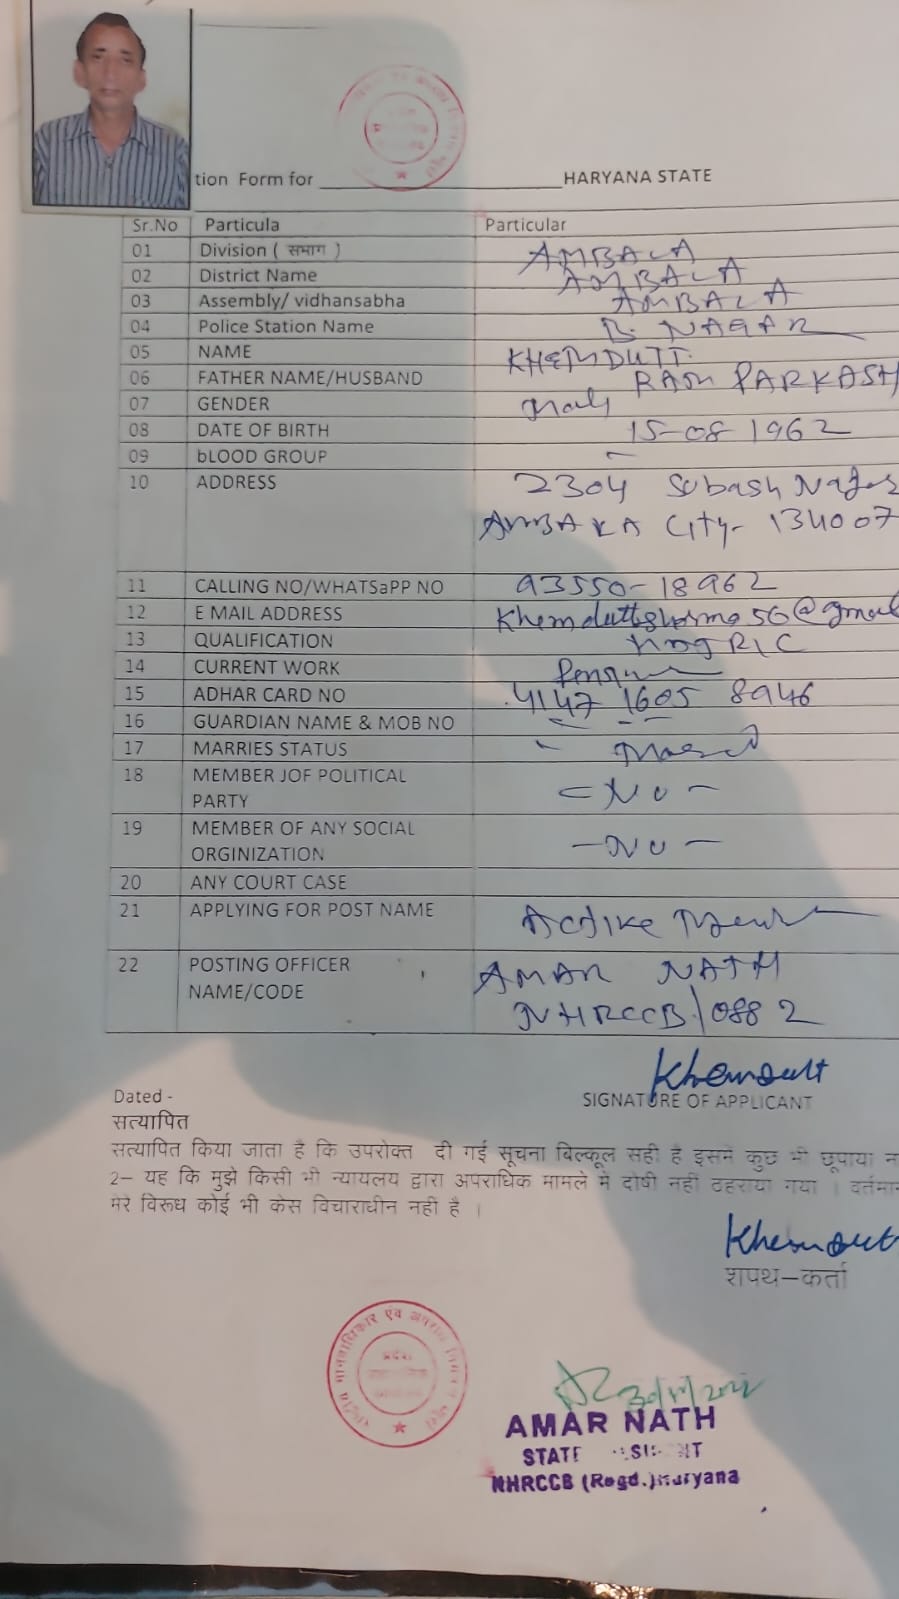 tion Form for ____________________ HARYANA STATE
Sr.No Particula Particular
01 Division ( सभाग ) AMBALA
02 District Name AMBALA
03 Assembly/ vidhansabha AMBALA
04 Police Station Name B. NAGAR
05 NAME KHEMDUTT.
06 FATHER NAME/HUSBAND RAM PARKASH
07 GENDER
08 DATE OF BIRTH 15-08 1962
09 bLOOD GROUP
10 ADDRESS 2304 Subash Nagar
AMBAKA City- 134007
11 CALLING NO/WHATSaPP NO 93550-18962
12 E MAIL ADDRESS Khemduttsharma56@gmail
13 QUALIFICATION
14 CURRENT WORK
15 ADHAR CARD NO 4147 1605 8946
16 GUARDIAN NAME & MOB NO
17 MARRIES STATUS
18 MEMBER JOF POLITICAL - No -
PARTY
19 MEMBER OF ANY SOCIAL - No -
ORGINIZATION
20 ANY COURT CASE
21 APPLYING FOR POST NAME Active
22 POSTING OFFICER AMAR NATH
NAME/CODE NHRCCB/0882
Khemdutt
SIGNATURE OF APPLICANT
Dated -
सत्यापित
सत्यापित किया जाता है कि उपरोक्त दी गई सूचना बिल्कूल सही है इसमें कुछ भी छूपाया न
2– यह कि मुझे किसी भी न्यायलय द्वारा अपराधिक मामले मे दोषी नहीं ठहराया गया । वर्तमान
मेरे विरूध कोई भी केस विचाराधीन नहीं है ।
Khemdutt
शपथ–कर्ता
AMAR NATH
STATE
NHRCCB (Regd.) Haryana